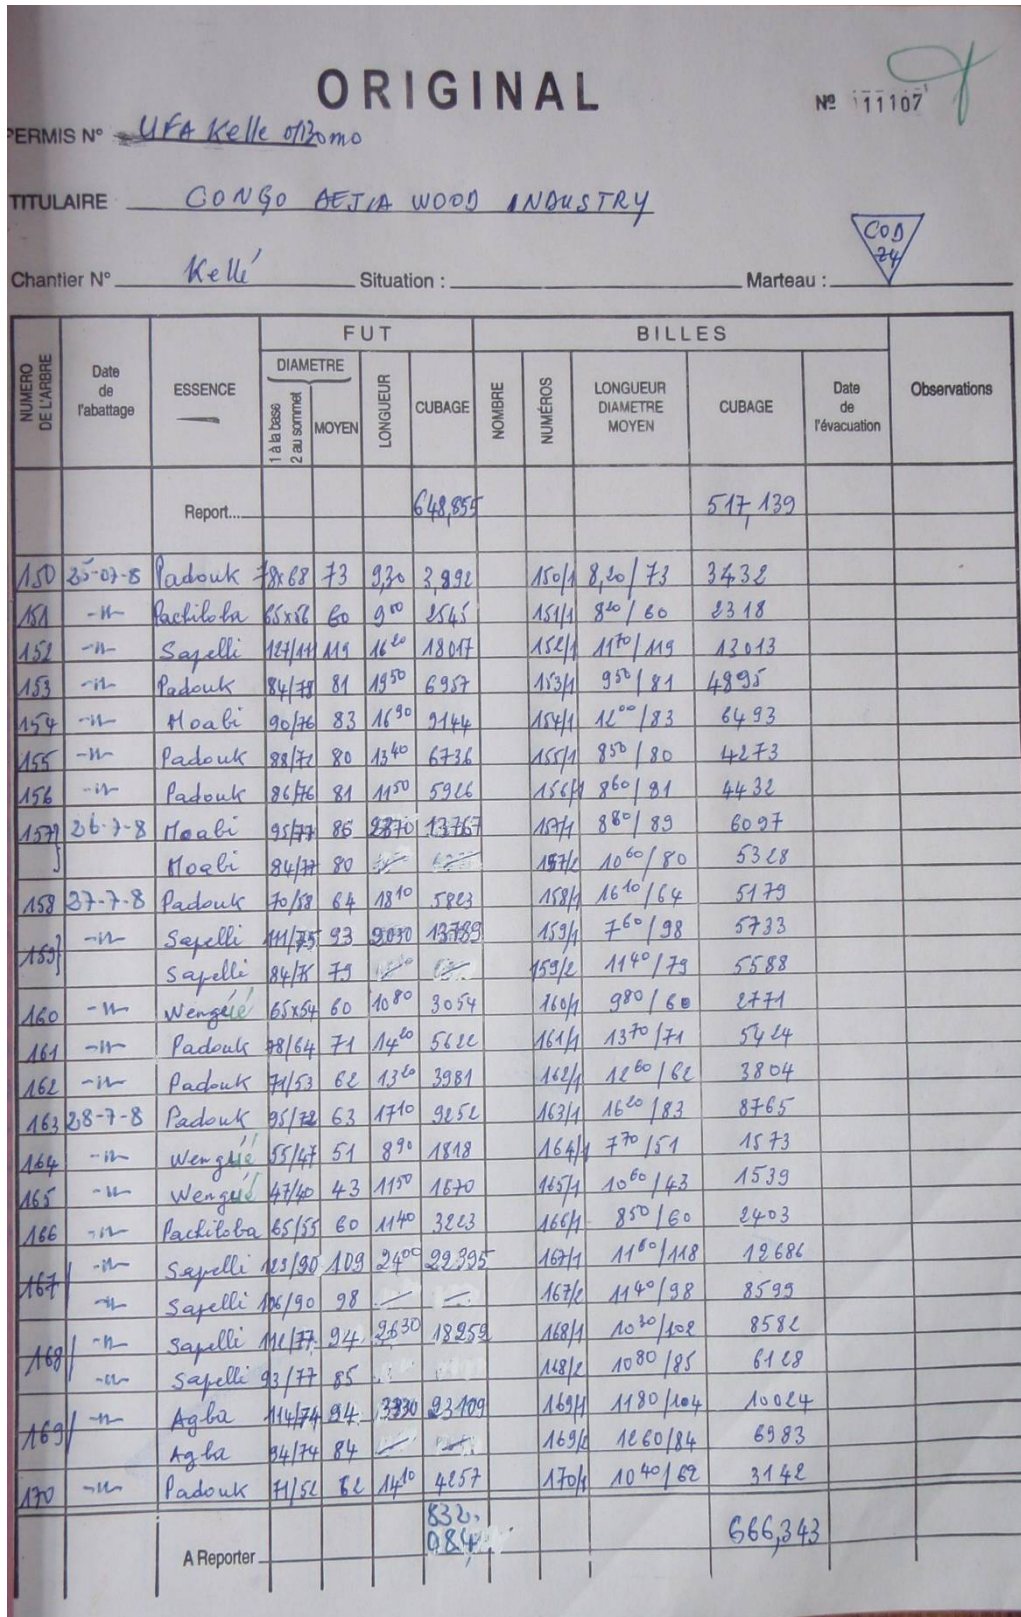 ORIGINAL
Nº 11107
PERMIS N° UFA Kelle
TITULAIRE CONGO DEJIA WOOD INDUSTRY
COD
Chantier N° Kellé Situation : Marteau :
FUT BILLES
NUMERO DE L'ARBRE Date de l'abattage ESSENCE DIAMETRE 1 à la base 2 au sommet MOYEN LONGUEUR CUBAGE NOMBRE NUMÉROS LONGUEUR DIAMETRE MOYEN CUBAGE Date de l'évacuation Observations
Report.... 648,855 517,139
150 25-07-8 Padouk 78x68 73 9,30 3,892 150/1 8,20/73 3432
151 -"- Pachiloba 65x56 60 9 00 2545 151/1 8 20/60 2318
152 -"- Sapelli 127/111 119 16 20 18017 152/1 11 70/119 13013
153 -"- Padouk 84/78 81 13 50 6957 153/1 9 50/81 4895
154 -"- Moabi 90/76 83 16 90 9144 154/1 12 00/83 6493
155 -"- Padouk 88/72 80 13 40 6736 155/1 8 50/80 4273
156 -"- Padouk 86/76 81 11 50 5926 156/1 8 60/81 4432
157 26-7-8 Moabi 95/77 86 2370 13767 157/1 8 80/89 6097
Moabi 84/77 80 157/2 10 60/80 5328
158 27-7-8 Padouk 70/58 64 18 10 5823 158/1 16 10/64 5179
159 -"- Sapelli 111/75 93 2030 13789 159/1 7 60/98 5733
Sapelli 84/75 79 159/2 11 40/79 5588
160 -"- Wengué 65x54 60 10 80 3054 160/1 9 80/60 2771
161 -"- Padouk 78/64 71 14 20 5622 161/1 13 70/71 5424
162 -"- Padouk 71/53 62 13 20 3981 162/1 12 60/62 3804
163 28-7-8 Padouk 95/72 63 17 10 9252 163/1 16 20/83 8765
164 -"- Wengué 55/47 51 8 90 1818 164/1 7 70/51 1573
165 -"- Wengué 47/40 43 11 50 1670 165/1 10 60/43 1539
166 -"- Pachiloba 65/55 60 11 40 3223 166/1 8 50/60 2403
167 -"- Sapelli 123/90 109 24 00 22395 167/1 11 60/118 12686
-"- Sapelli 106/90 98 167/2 11 40/98 8599
168 -"- Sapelli 112/77 94 2630 18259 168/1 10 30/102 8582
-"- Sapelli 93/77 85 168/2 10 80/85 6128
169 -"- Agba 114/74 94 3330 23109 169/1 11 80/104 10024
Agba 94/74 84 169/2 12 60/84 6983
170 -"- Padouk 71/52 62 14 10 4257 170/1 10 40/62 3142
A Reporter 832,084 666,343